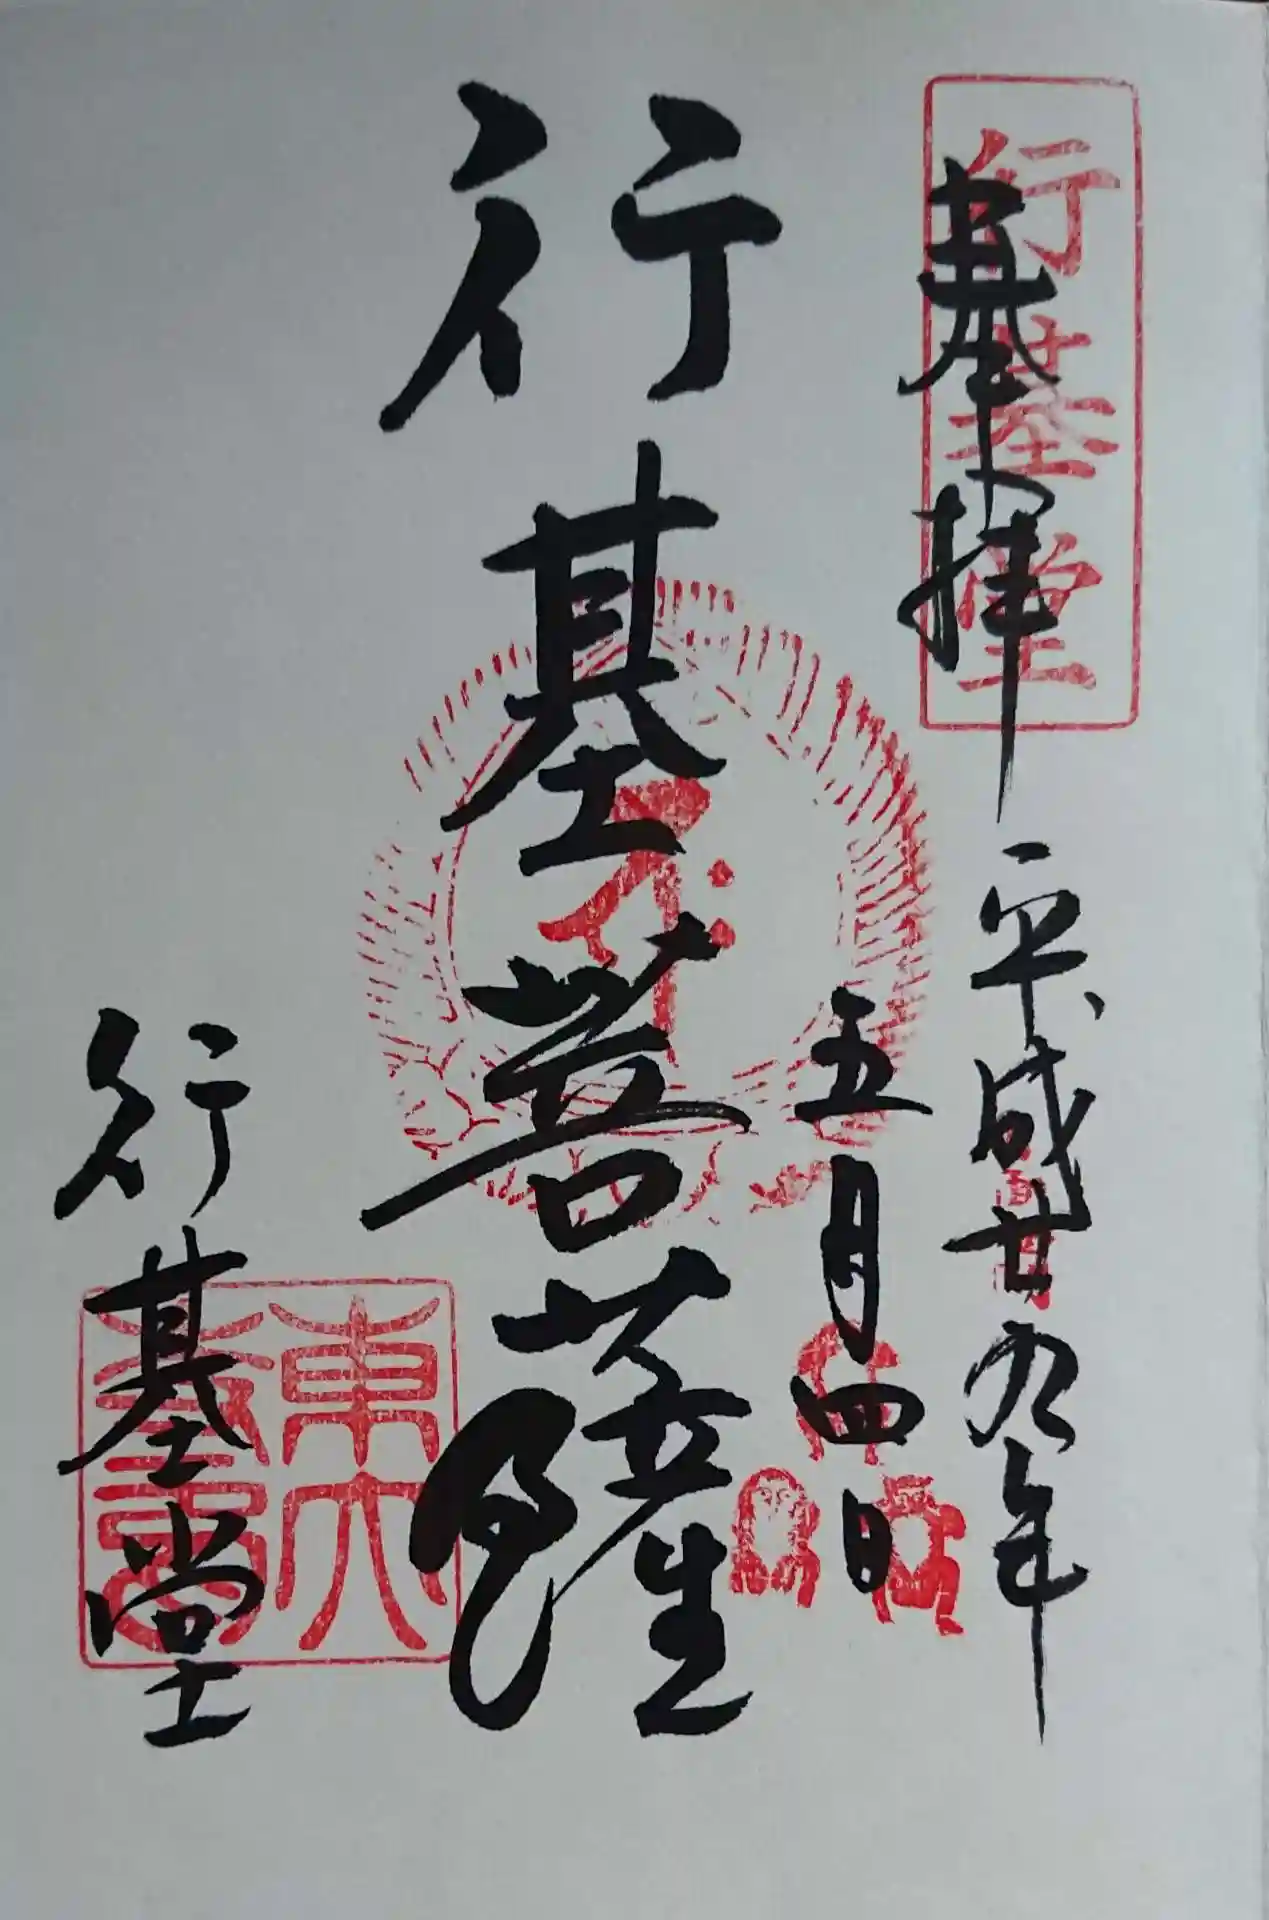 行基堂
奉拝
平成廿九年
五月四日
行基菩薩
行基堂
東大